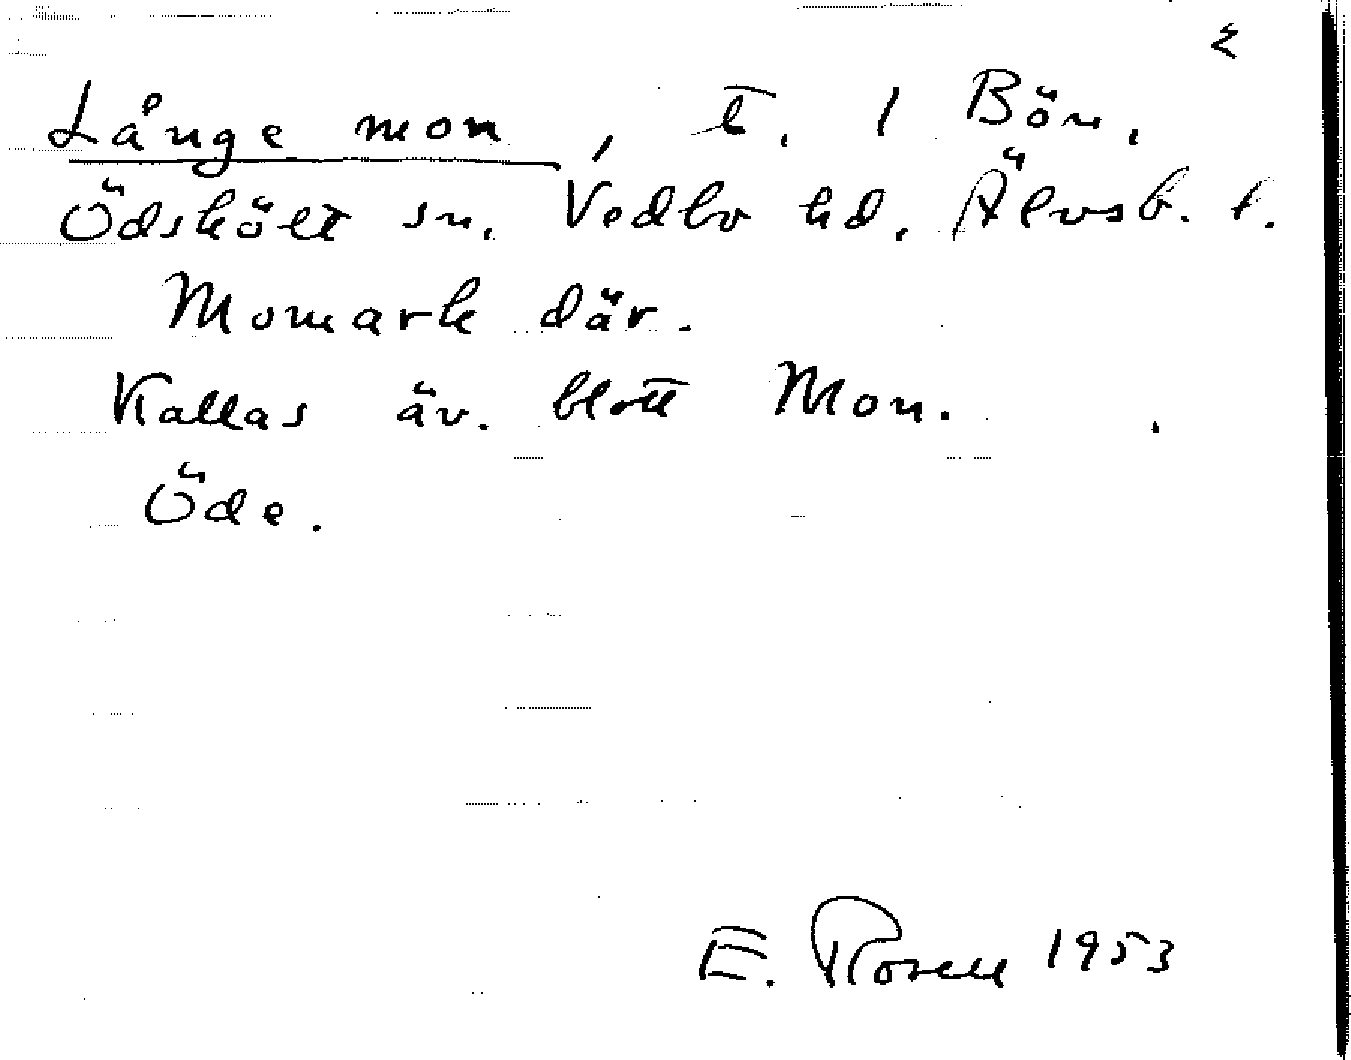 Långe mon, t. 1 Bön,
Ödskölt sn, Vedbo hd, Älvsb. l.
Momark där.
Kallas äv. blott Mon.
Öde.
E. Rosell 1953